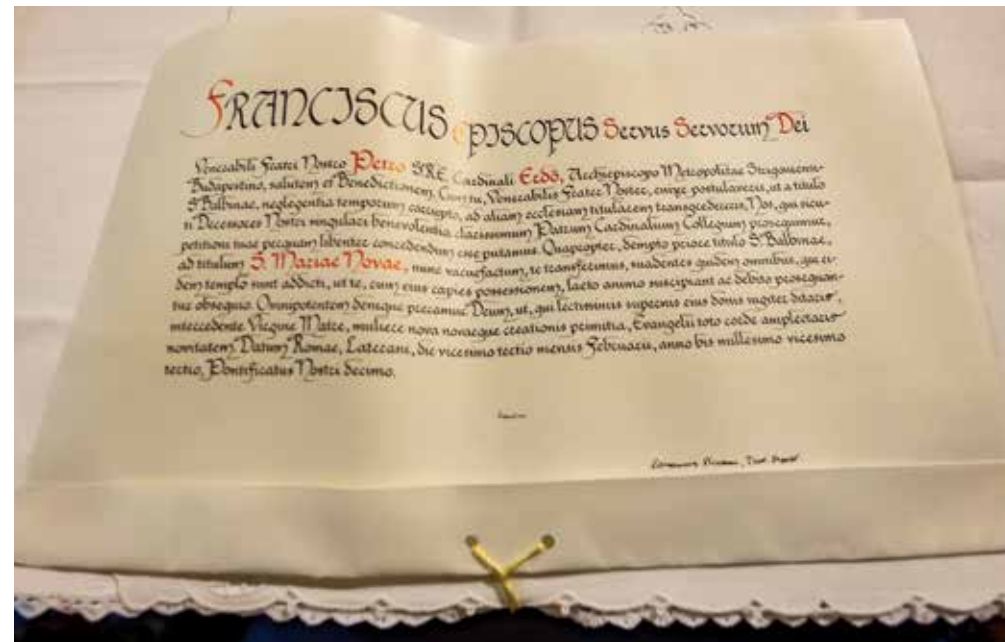 FRANCISCUS EPISCOPUS Servus Servorum Dei
Venerabili Fratri Nostro Petro S.R.E. Cardinali Erdő, Archiepiscopo Metropolitae Strigoniensi-
Budapestino, salutem et Benedictionem. Cum tu, Venerabilis Frater Noster, enixe postulaveris, ut a titulo
S. Balbinae, neglegentia temporum corrupto, ad aliam ecclesiam titularem transgredereris, Nos, qui sicu-
ti Decessores Nostri singulari benevolentia clarissimum Patrum Cardinalium Collegium prosequimur,
petitioni tuae perquam libenter concedendum esse putamus. Quapropter, dempto priore titulo S. Balbinae,
ad titulum S. Mariae Novae, nunc vacuefactum, te transferimus, suadentes quidem omnibus, qui ei-
dem templo sunt addicti, ut te, cum eius capies possessionem, laeto animo suscipiant ac debito prosequan-
tur obsequio. Omnipotentem denique precamur Deum, ut, qui lectissimis supernis eius donis iugiter ditaris,
intercedente Virgine Matre, muliere nova novaeque creationis primitia, Evangelii toto corde amplectaris
novitatem. Datum Romae, Laterani, die vicesimo tertio mensis Februarii, anno bis millesimo vicesimo
tertio, Pontificatus Nostri decimo.